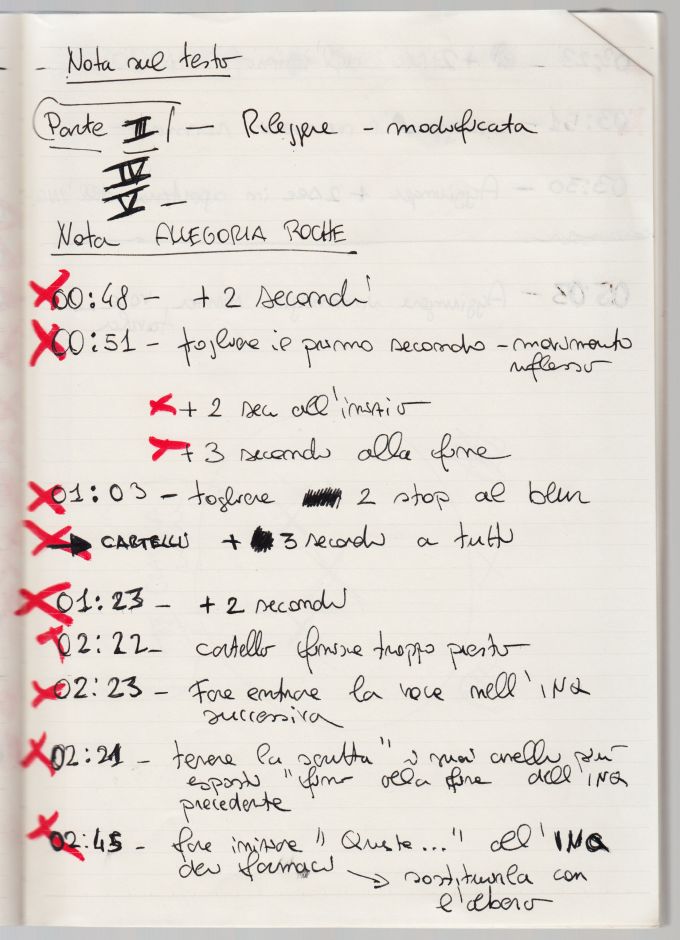 - Nota sul testo
Parte III / - Rileggere - modificata
IV
V -
Nota ALLEGORIA ROCHE
00:48 - + 2 secondi
00:51 - togliere il primo secondo - movimento
riflesso
+ 2 sec all'inizio
+ 3 secondi alla fine
01:03 - togliere 2 stop al blur
→ CARTELLI + 3 secondi a tutti
01:23 - + 2 secondi
02:22 - cartello finisce troppo presto
02:23 - Fare entrare la voce nell'INQ
successiva
02:21 - tenere la scritta "i suoi anelli più
esposti" fino alla fine dell'INQ
precedente
02:45 - fare iniziare "Queste..." all'INQ
dei farmaci → sostituirla con
l'albero